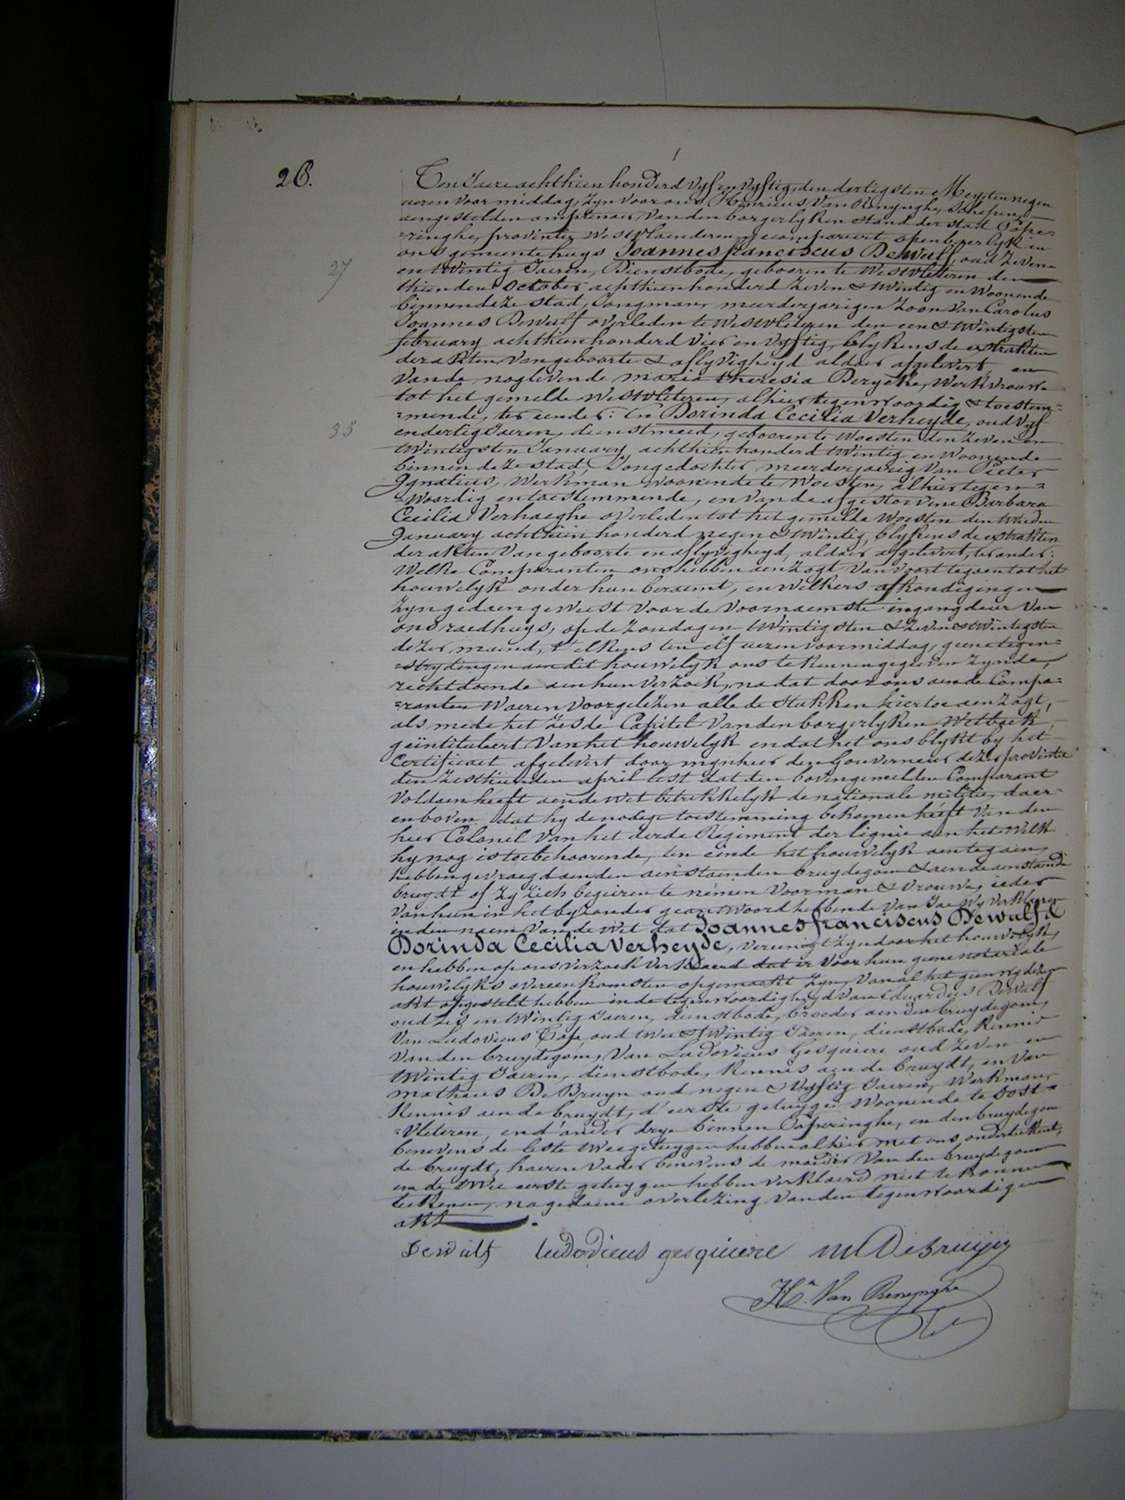 26.
Ten Jaere achthien honderd vyf en vyftig, den dertigsten Mey ten negen
ueren voormiddag, zyn voor ons Henricus Van Renynghe, Schepen,
aengestelden ambtenaer van den borgerlyken stand der stad Pope-
ringhe, provintie Westvlaenderen, gecompareert openbaerlyk in
ons gemeentehuys Joannes franciscus Dewulf, oud zeven-
27
en twintig Jaeren, Dienstbode, geboren te Westvleteren den
thienden October achthien honderd zeven & twintig en woonende
binnen deze stad, Jongman, meerderjarigen zoon van Carolus
Joannes Dewulf overleden te Westvleteren den een & twintigsten
february achthien honderd vier en vyftig, blykens de extrakten
der akten van geboorte & aflyvigheyd aldaer afgelevert, en
van de noglevende maria theresia Beryeke, Werkvrouw
tot het gemelde Westvleteren, alhier tegenwoordig & toestem-
=mende, ter eender: En Dorinda Cecilia Verheyde, oud vyf
35
en dertig Jaeren, dienstmeid, geboren te Woesten den zeven en
twintigsten January achthien honderd twintig en woonende
binnen deze stad, Jongedochter, meerderjarig van Pieter
Ignatius, Werkman woonende te Woesten, alhier tegen=
=woordig en toestemmende, en van de afgestorvene Barbara
Cecilia Verhaeghe overleden tot het gemelde Woesten den
January achthien honderd negen & twintig, blykens de extrakten
der akten van geboorte en aflyvigheyd, aldaer afgelevert, ter ander:
Welke Comparanten ons hebben aenzogt van voort te gaen tot het
houwelyk onder hun beraemt, en welkers afkondigingen
zyn gedaen geweest voor de voornaemste ingangdeur van
ons raedhuys, op de zondagen twintigsten & zeven & twintigsten
dezer maend, t'elkens ten elf ueren voormiddag, geene tegen-
=strydingen aen dit houwelyk ons te kennen gegeven zynde,
rechtdoende aen hun verzoek, na dat door ons aen de Compa=
=ranten waeren voorgelezen alle de stukken hiertoe aenzogt,
als mede het zesde Capitel van den borgerlyken Wetboek,
geïntituleert van het houwelyk en dat het ons blykt by het
Certificaet afgelevert door mynheer den Gouverneur dezer provintie
den zesthienden april lest dat den bovengemelden Comparant
voldaen heeft aen de wet betrekkelyk de nationale militie, daer-
enboven, dat hy de nodige toestemming bekomen heeft van den
heer Colonel van het derde Regiment der lignie aen het welk
hy nog is toebehoorende, ten einde het houwelyk aentegaen,
hebben gevraegd aenden aenstaenden bruydegom & aen de aenstaende
bruydt of zy zich begeiren te némen voor man & vrouwe, ieder
van hun in het byzonder geantwoord hebbende van Jae wy verklaeren
in den naem van de Wet dat Joannes franciscus Dewulf &
Dorinda Cecilia Verheyde, vereenigt zyn door het houwelyk,
en hebben op ons verzoek verklaerd dat er voor hun geene notariale
houwelyks overeenkomsten opgemaekt zyn, van al het gene wy dezen
akt opgesteld hebben in de tegenwoordigheyd van Eduardus Dewulf
oud zes en twintig Jaeren, dienstbode, broeder aen den bruydegom,
van Ludovicus Top, oud twee & twintig Jaeren, dienstbode, kennis
van den bruydegom, van Ludovicus Gesquiere oud zeven en
twintig Jaeren, dienstbode, kennis aen de bruydt, en van
matheus De Bruyn oud negen & vyftig Jaeren, Werkman,
kennis aen de bruydt, d'eerste getuyge woonende te Oost=
=vleteren, en d'ander drye binnen Poperinghe, en den bruydegom
benevens de leste twee getuygen hebben alhier met ons onderteekent,
de bruydt, haeren vader benevens de moeder van den bruydegom
en de twee eerste getuygen hebben verklaerd niet te konnen
teekenen, na gedaene overlezing van den tegenwoordigen
akt.
Dewulf ludovicus gesquiere m DeBruyn
Hs. Van Renynghe